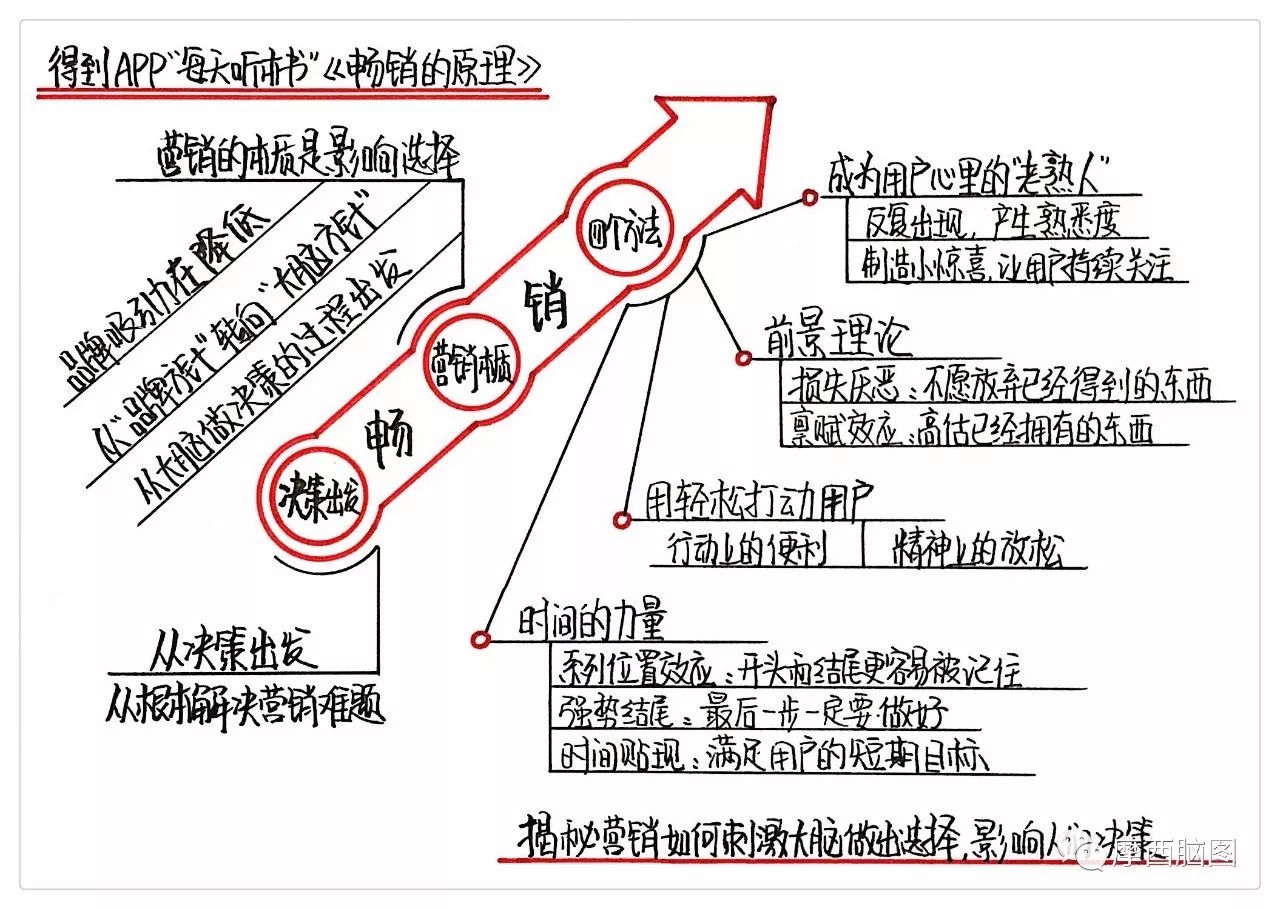 得到APP"每天听本书"《畅销的原理》
营销的本质是影响选择
品牌吸引力在降低
从"品牌方针"转向"大脑方针"
从大脑做决策的过程出发
决策出发
畅
营销本质
销
四个方法
从决策出发
从根本解决营销难题
成为用户心里的"老熟人"
反复出现，产生熟悉度
制造小惊喜，让用户持续关注
前景理论
损失厌恶：不愿放弃已经得到的东西
禀赋效应：高估已经拥有的东西
用轻松打动用户
行动上的便利
精神上的放松
时间的力量
系列位置效应：开头和结尾更容易被记住
强势结尾：最后一步一定要做好
时间贴现：满足用户的短期目标
揭秘营销如何刺激大脑做出选择，影响人们决策
摩西脑图